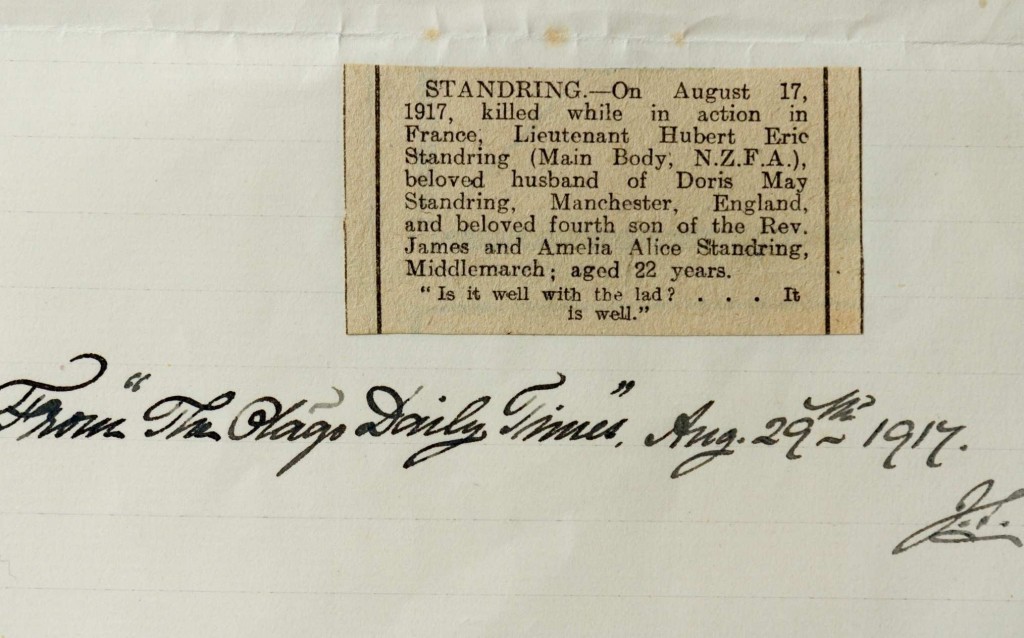 STANDRING.—On August 17,
1917, killed while in action in
France, Lieutenant Hubert Eric
Standring (Main Body, N.Z.F.A.),
beloved husband of Doris May
Standring, Manchester, England,
and beloved fourth son of the Rev.
James and Amelia Alice Standring,
Middlemarch; aged 22 years.
"Is it well with the lad? . . . It
is well."
From "The Otago Daily Times", Aug. 29th 1917.
J.S.